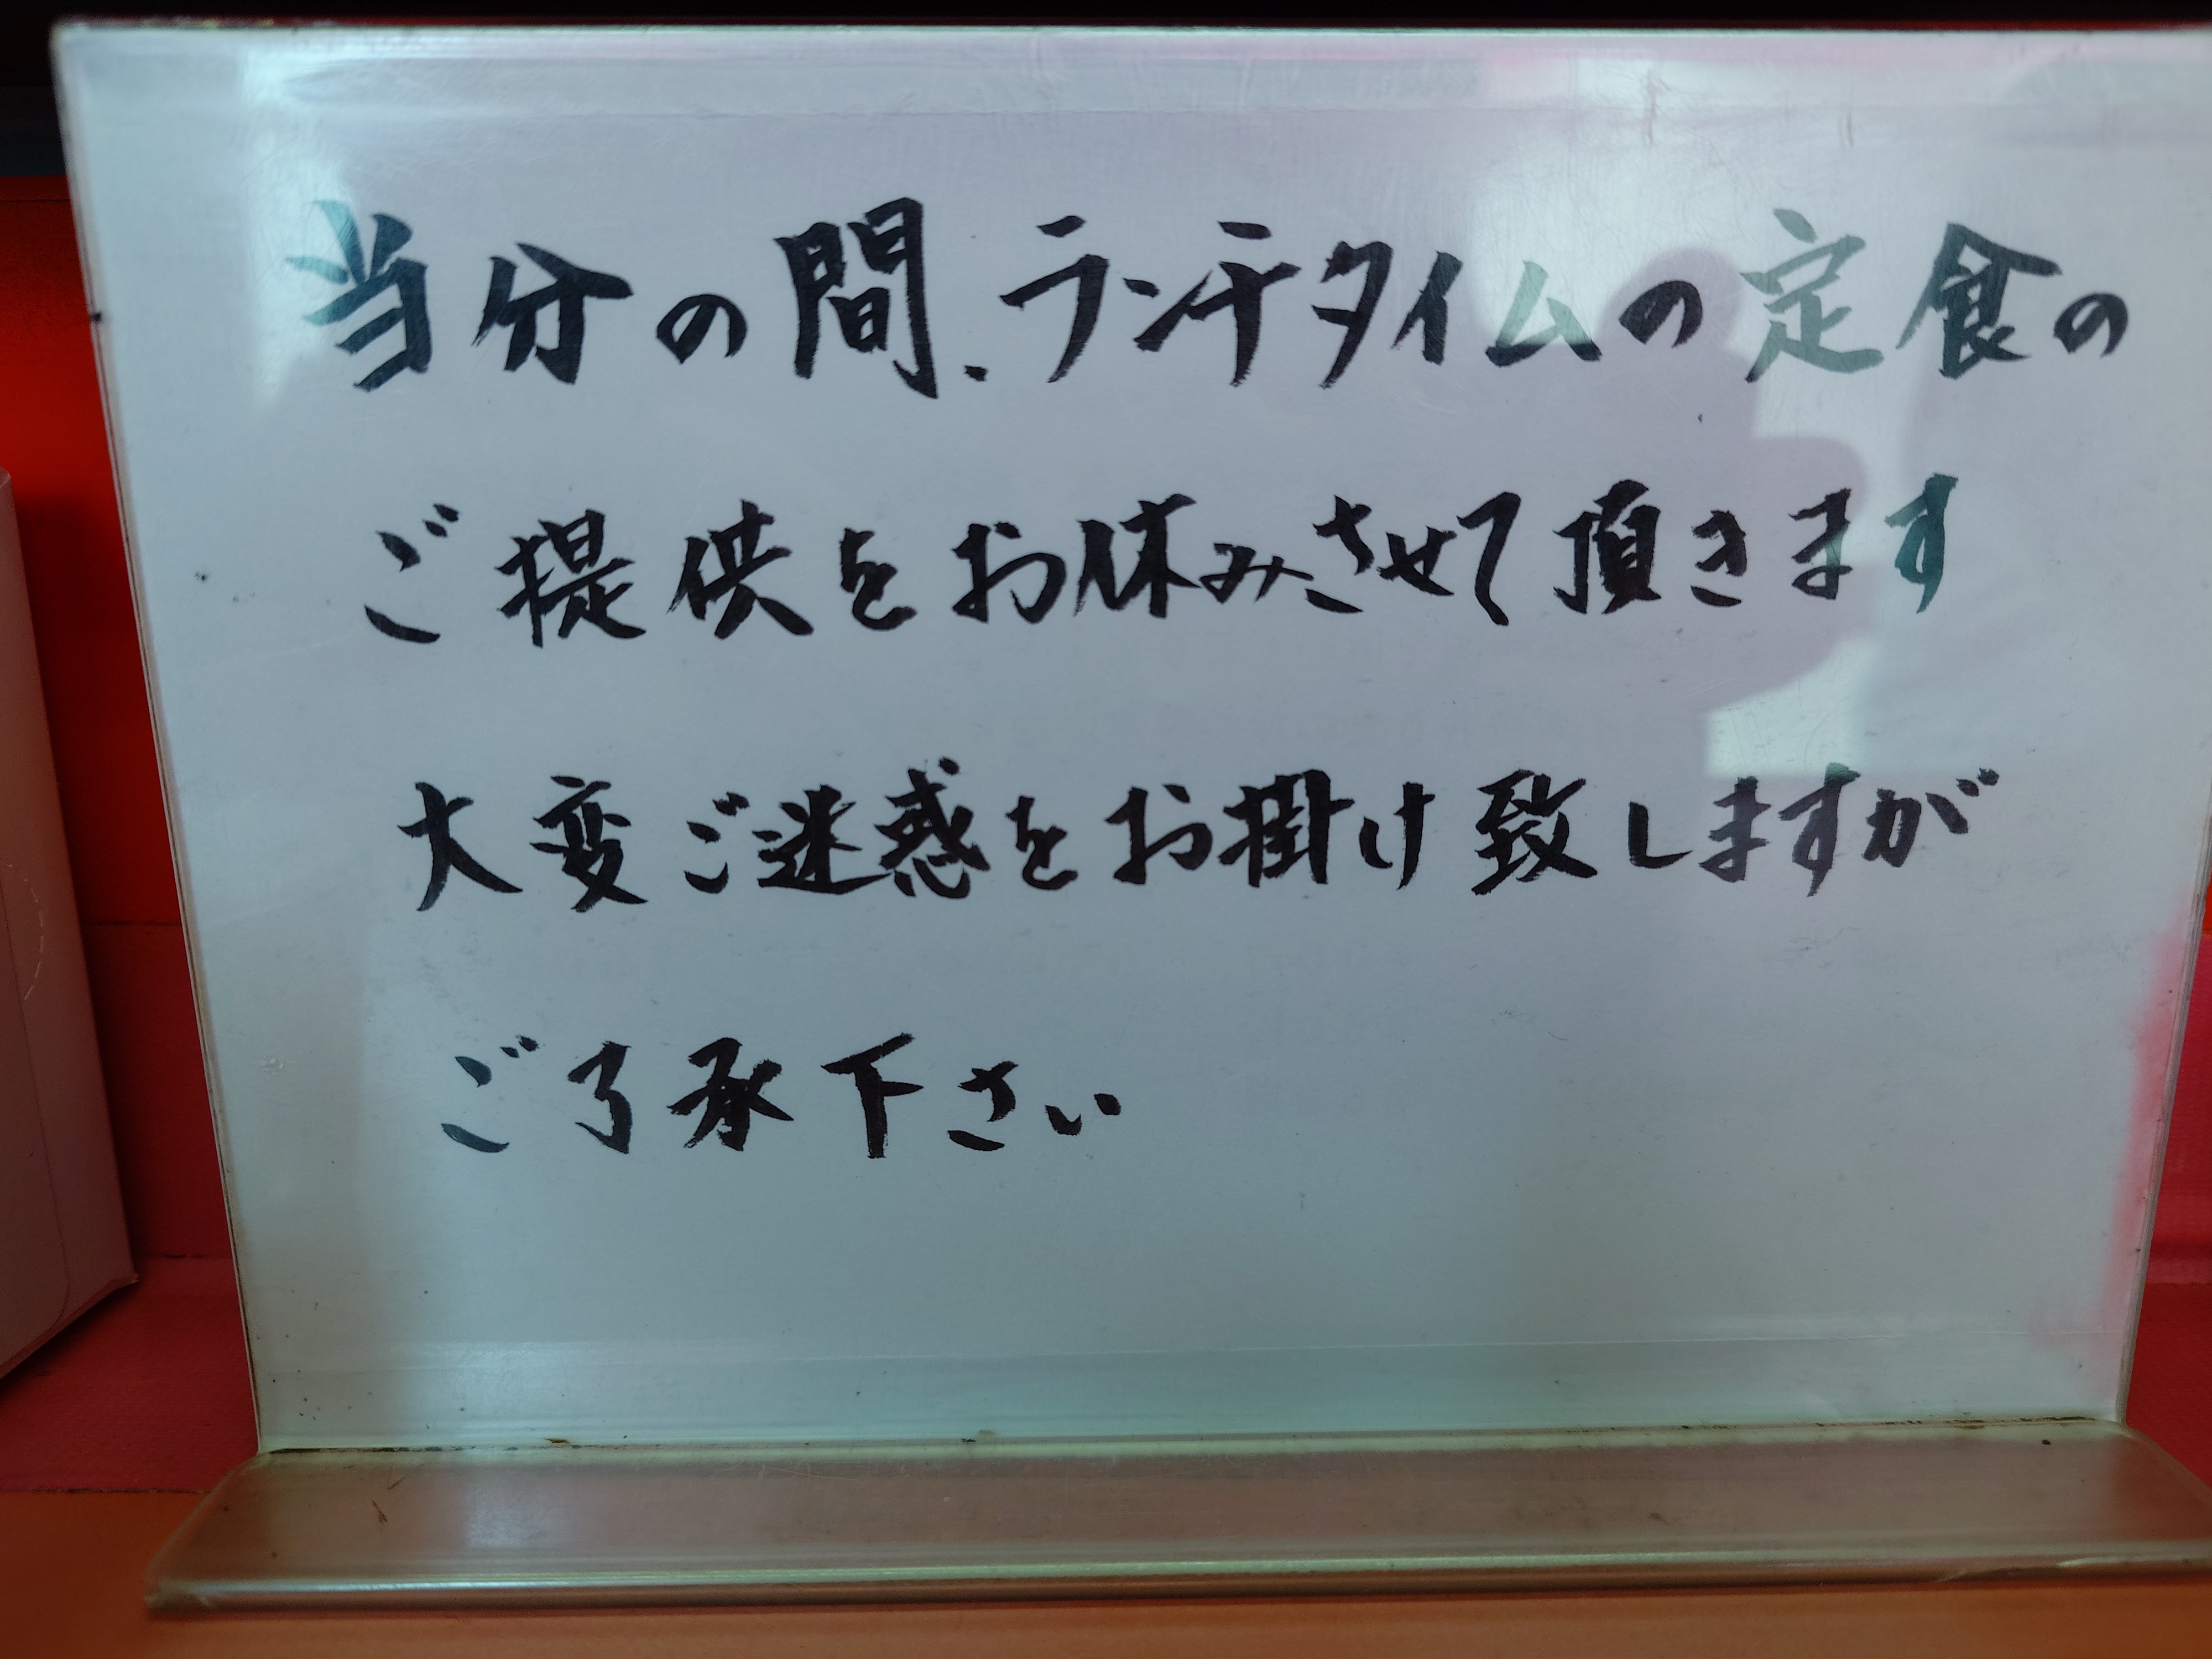 当分の間、ランチタイムの定食の
ご提供をお休みさせて頂きます
大変ご迷惑をお掛け致しますが
ご了承下さい